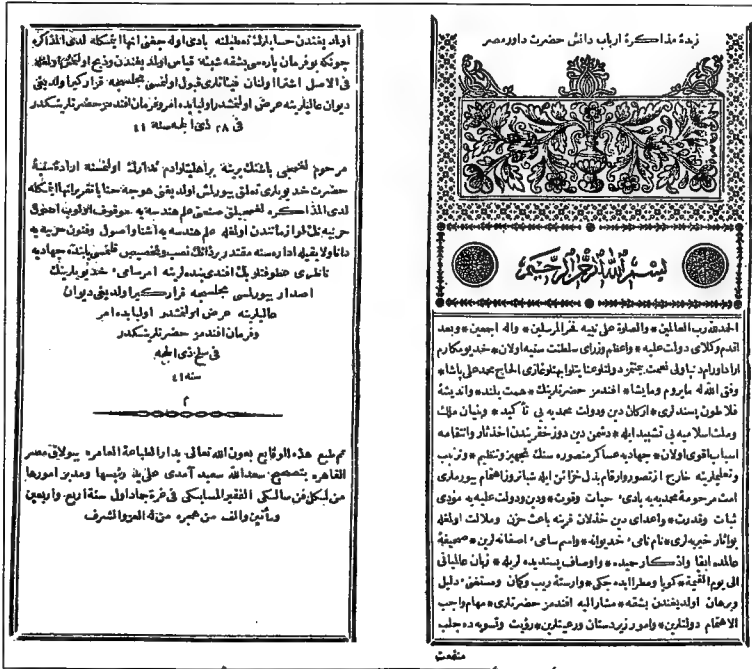 زبدۀ مذاكرۀ ارباب دانش حضرت داور مصر
بسم الله الرحمن الرحيم
الحمد لله رب العالمين * والصلوة على نبيه فخر المرسلين * واله اجمعين * وبعد
اقدم وكلاى دولت عليه * واعظم وزراى سلطنت سنيه اولان * خديو مكارم
الحاج محمد على پاشا *
وفق الله له مايروم ومايشا * افندمز حضرتلرينك * همت بلند * وانديشۀ
فلاطون پسندلرى * اركان دين ودولت محمديه يى تأكيد * وبنيان ملك
وملت اسلاميه يى تشييد ايله * دشمن دين دوزخ قريندن اخذ ثار وانتقامه
اسباب اقوى اولان * جهاديه عساكر منصوره سنك تجهيز وتنظيم * وترتيب
وتعليملرينه خارج از تصور وارقام بذل خزائن ايله شبانروز اهتمام بيورملرى
امت مرحومۀ محمديه يه بادئ حيات وقوت * ودين ودولت عليه يه مؤدى
ثبات وقدرت * واعداى دين خذلان قرينه باعث حزن وملالت اولمغله
بو آثار خيريه لرى * نام نامئ خديوانه * واسم سامئ اصفانه لرين * صحيفۀ
عالمده ابقا واذكار جميده * واوصاف پسنديده لريله * زبان عالميانى
الى يوم القيمة * كويا ومطرا ايده جكى * وارستۀ ريب وكمان ومستغنئ دليل
وبرهان اولديغندن بشقه * مشاراليه افندمز حضرتلرى * مهام واجب
الاهتمام دولتلرين * وامور زيردستان ورعيتلرين * رؤيت وتسويه ده جلب
منفعت
اولديغندن حسابلرك تعطيلنه بادى اوله جغنى انها ايتمكله لدى المذاكره
چونكه بو فرمان پاره سى بشقه شيئه قياس اولديغندن
فى الاصل اشترا اولنان فيئاتلرى قبول اولنمسى مجلسجه قراركير اولديغى
ديوان عاليلرينه عرض اولنمشدر اولبابده امر وفرمان افندمز حضرتلرينكدر
فى ٢٨ ذى الحجه سنة ٤١
مرحوم باشنك يرينه بر اهليتلو ادم تدارك اولنمسنه ارادۀ سنيۀ
حضرت خديويلرى تعلق بيورلمش اولديغنى خوجه تقرير انها ايتمكله
لدى المذاكره صنعتى علم هندسه يه موقوف اولوب اصول
حربيه نك لوازماتندن اولمغله علم هندسه يه آشنا واصول وفنون حربيه يه
دانا ويقيله اداره سنه مقتدر برذاتك نصب وتخصيص قلنمسى بابنده جهاديه
ناظرى عطوفتلو بك افندى بنده لرينه امر سامئ خديويلرينك
اصدار بيورلمسى مجلسجه قراركير اولديغى ديوان
عاليلرينه عرض اولنمشدر اولبابده امر
وفرمان افندمز حضرتلرينكدر
فى سلخ ذى الحجه
سنه ٤١
م
تم طبع هذه الوقايع بعون الله تعالى بدار الطباعة العامره ببولاق مصر
القاهره بتصحيح سعد الله سعيد آمدى على يد رئيسها ومدير امورها
من لكل فن سالكى الفقير المسابكى فى غرة جماد اول سنة اربع واربعين
ومأتين والف من هجرة من له العز والشرف